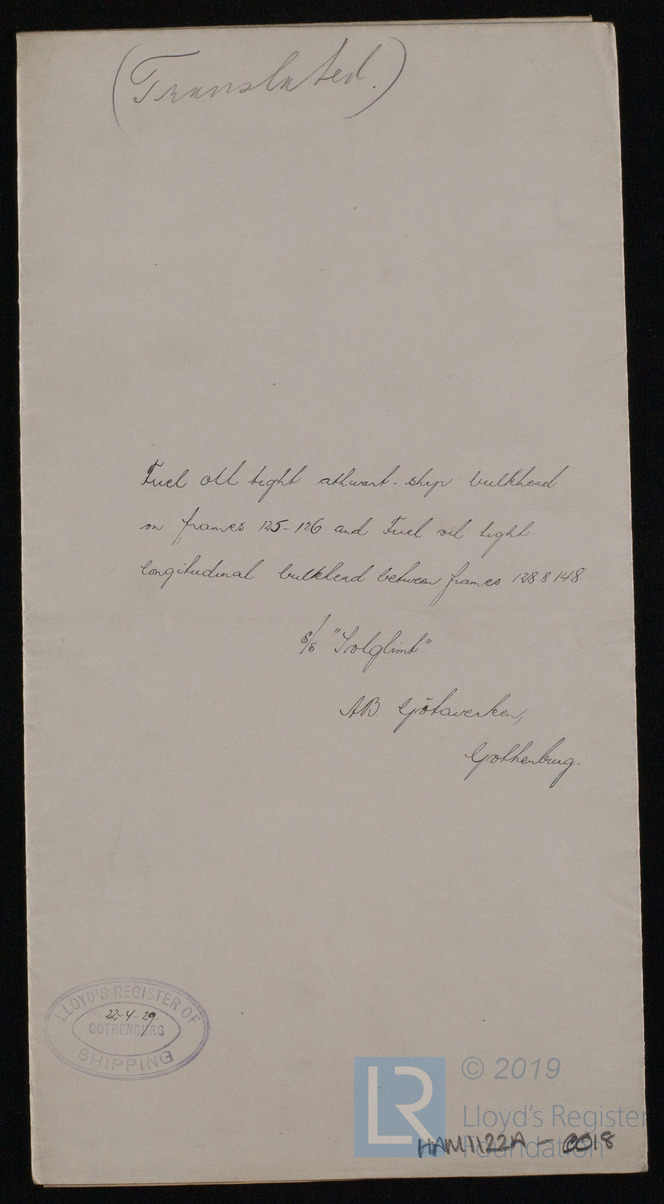 (Translated.)
Fuel oil tight athwart-ship bulkhead
on frames 125-126 and Fuel oil tight
longitudinal bulkhead between frames 128 & 148
s/s "Solglimt"
AB Götaverken,
Gothenburg.
LLOYD'S REGISTER OF
22-4-29.
GOTHENBURG
SHIPPING
© 2019
LR
Lloyd's Register
Foundation
HAM1122A - 0018